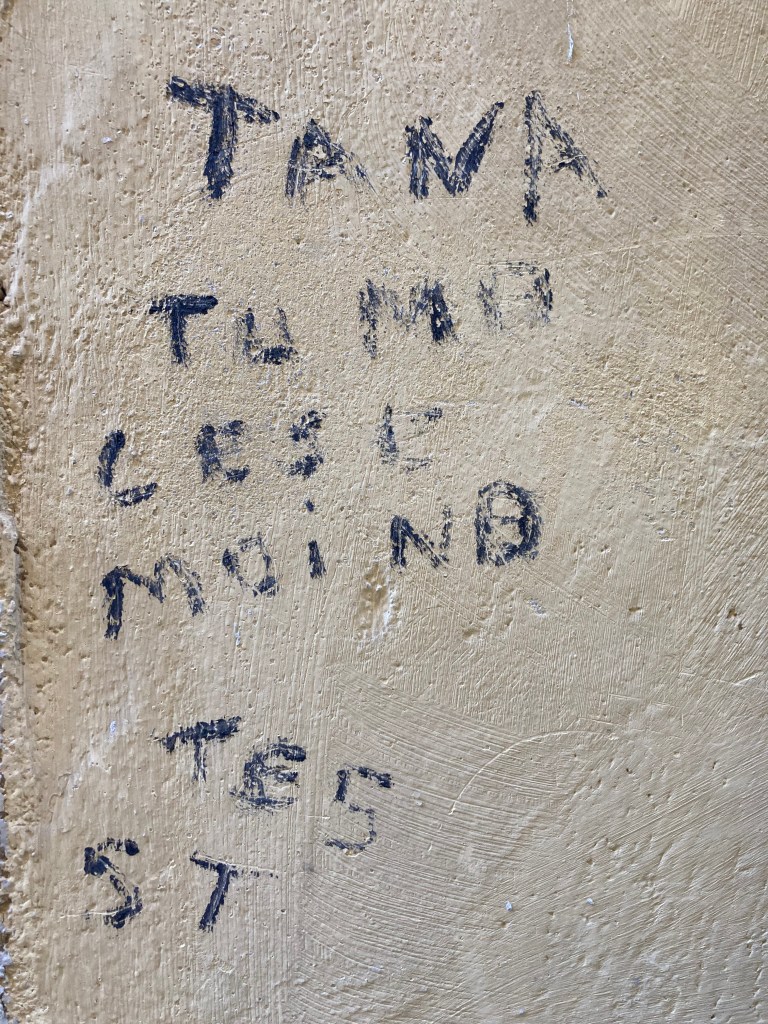 TANA
TU MO
LESE
MOi NB
TES
ST